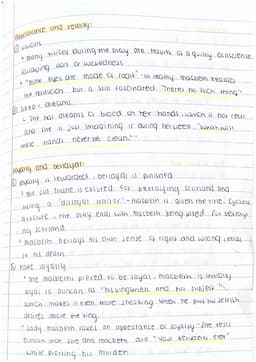 Appearance and reality:
① visions
• many visions during the play are results of a guilty conscience
following acts of wickedness
• "mine eyes are made o' fools" - in reality macbeth realises
the delusion but is still fascinated "there's no such thing"
② Sleep + dreams
• she has dreams of blood on her hands, which is not real
and she is just imagining it during her sleep. "what, will
these hands never be clean?"
loyalty and betrayal:
① loyalty is rewarded, betrayal is punished
• the old thane is executed for betraying Scotland and
being a "disloyal traitor" - macbeth is given the title. Cyclical
structure, the play ends with macbeth being killed for betray
ing Scotland
• macbeth betrays his own sense of right and wrong, leads
to his death
② fake loyalty
• the macbeths pretend to be loyal, macbeth is initially
loyal to Duncan as "his kinsman and his subject"
which makes it even more shocking when he puts his selfish
desires above the king.
• lady macbeth fakes an appearance of loyalty. She tells
Duncan that she and macbeth are "your servants ever"
while plotting his murder.